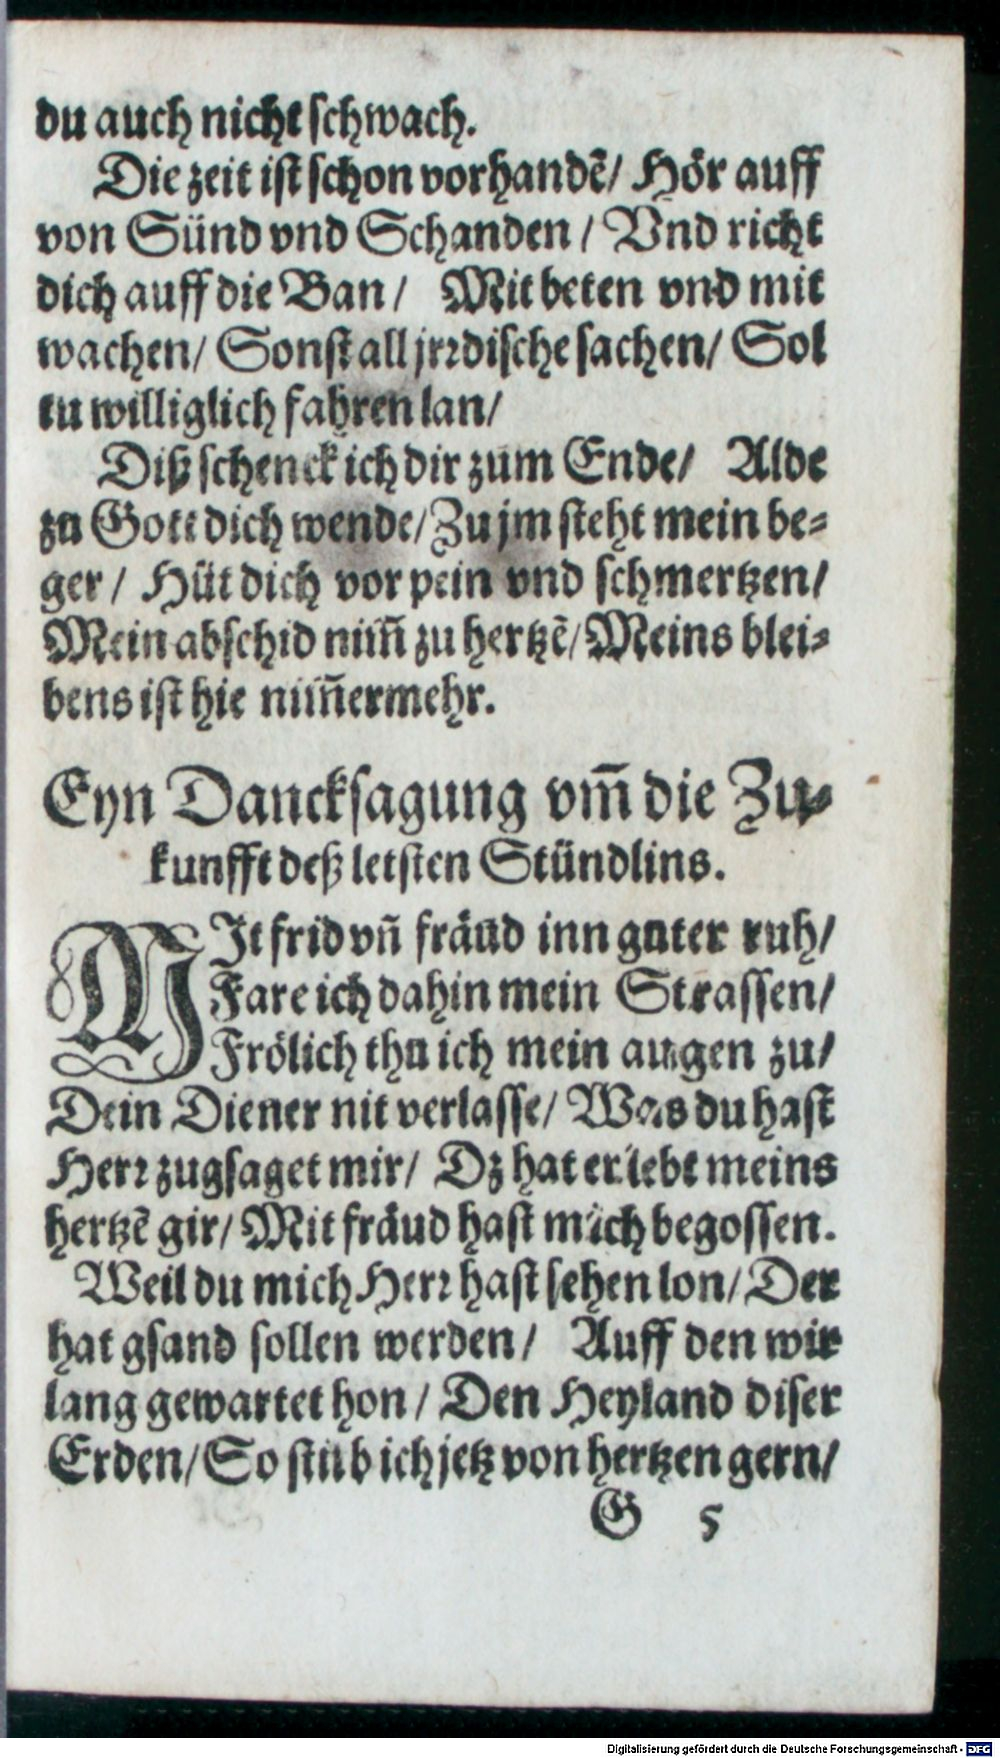 du auch nicht schwach.
Die zeit ist schon vorhandẽ/ Hör auff
von Sünd vnd Schanden / Vnd richt
dich auff die Ban / Mit beten vnd mit
wachen/ Sonst all jrꝛdische sachen/ Sol
tu williglich fahren lan/
Diß schenck ich dir zum Ende/ Alde
zu Gott dich wende/ Zu jm steht mein be-
ger / Hüt dich vor pein vnd schmertzen/
Mein abschid nim̃ zu hertzẽ/ Meins blei-
bens ist hie nim̃ermehr.
Eyn Dancksagung vm̃ die Zu-
kunfft deß letsten Stündlins.
MIt frid vñ fräud inn guter ruh/
Fare ich dahin mein Strassen/
Frölich thu ich mein augen zu/
Dein Diener nit verlasse/ Was du hast
Herꝛ zugsaget mir/ Dz hat erlebt meins
hertzẽ gir/ Mit fräud hast mich begossen.
Weil du mich Herꝛ hast sehen lon/ Der
hat gsand sollen werden / Auff den wir
lang gewartet hon / Den Heyland diser
Erden/ So stüb ich jetz von hertzen gern/
G 5
Digitalisierung gefördert durch die Deutsche Forschungsgemeinschaft - DFG